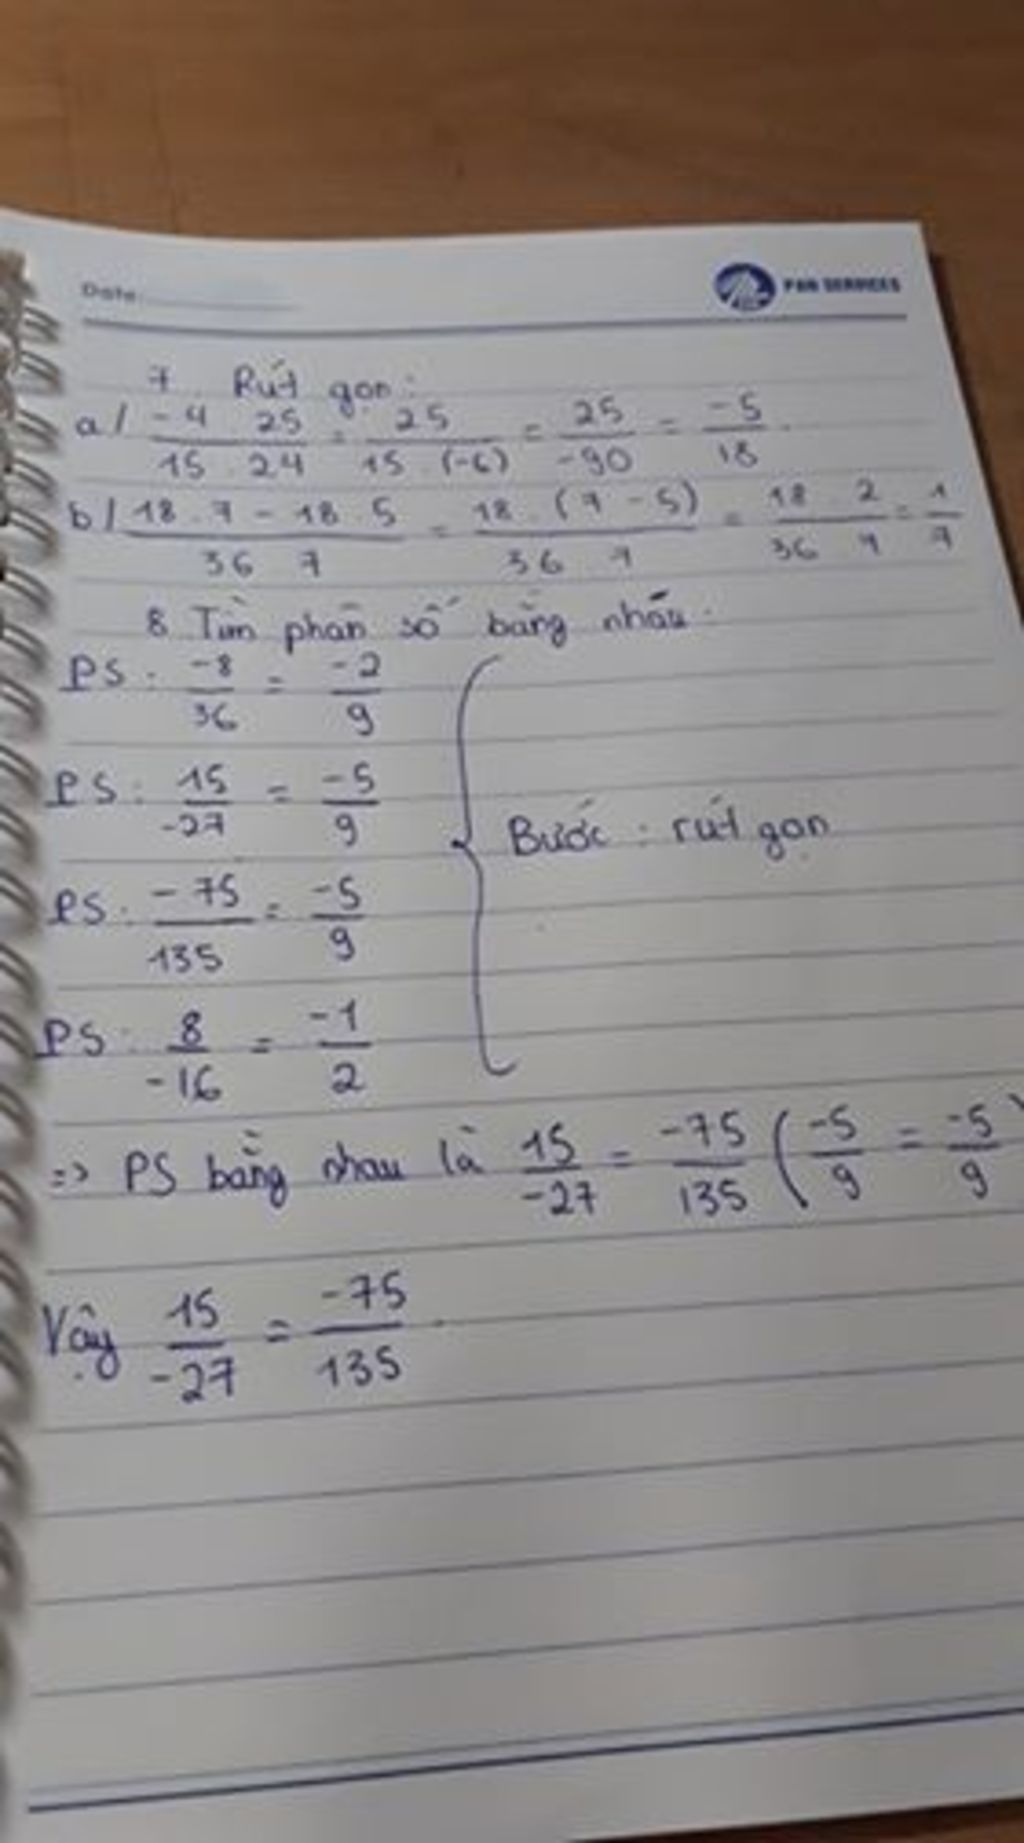 Date:
PAN SERVICES
7 Rút gọn:
a/ -4 25 / 15 . 24 = 25 / 15 . (-6) = 25 / -90 = -5 / 18
b/ 18 . 7 - 18 . 5 / 36 7 = 18 . (7 - 5) / 36 7 = 18 2 / 36 7 = 1 / 7
8 Tìm phân số bằng nhau.
PS: -8 / 36 = -2 / 9
PS: 15 / -27 = -5 / 9
Bước: rút gọn
PS: -75 / 135 = -5 / 9
PS: 8 / -16 = -1 / 2
=> PS bằng nhau là 15 / -27 = -75 / 135 ( -5 / 9 = -5 / 9 )
Vậy 15 / -27 = -75 / 135 .